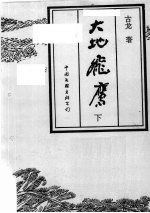 古龙 著
大地飞鹰
下
中国友谊出版公司